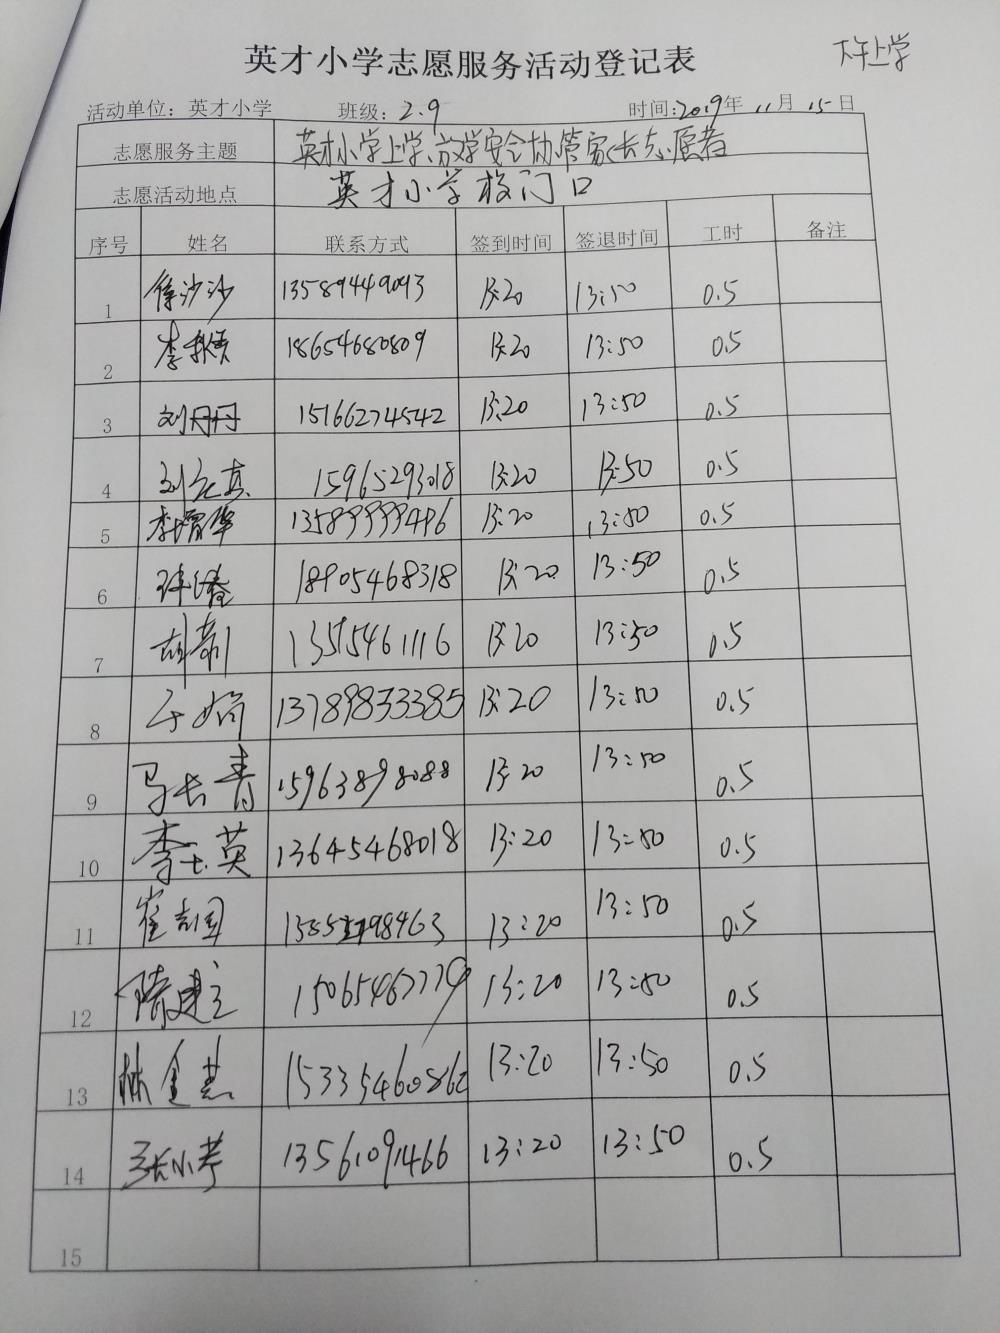 英才小学志愿服务活动登记表
下午上学
活动单位：英才小学 班级：2.9 时间：2019年11月15日
志愿服务主题 英才小学上学、放学安全协管家长志愿者
志愿活动地点 英才小学校门口
序号 姓名 联系方式 签到时间 签退时间 工时 备注
1 徐沙沙 13589449093 13:20 13:50 0.5
2 李 18654680809 13:20 13:50 0.5
3 刘丹丹 15166274542 13:20 13:50 0.5
4 刘元真 15965293018 13:20 13:50 0.5
5 李增华 13589999496 13:20 13:50 0.5
6 18905468318 13:20 13:50 0.5
7 胡 13515461116 13:20 13:50 0.5
8 于娟 13789833385 13:20 13:50 0.5
9 马长青 15963898088 13:20 13:50 0.5
10 李士英 13645468018 13:20 13:50 0.5
11 崔 13:20 13:50 0.5
12 隋建立 13:20 13:50 0.5
13 林金慧 15335460862 13:20 13:50 0.5
14 张小芳 13561091466 13:20 13:50 0.5
15